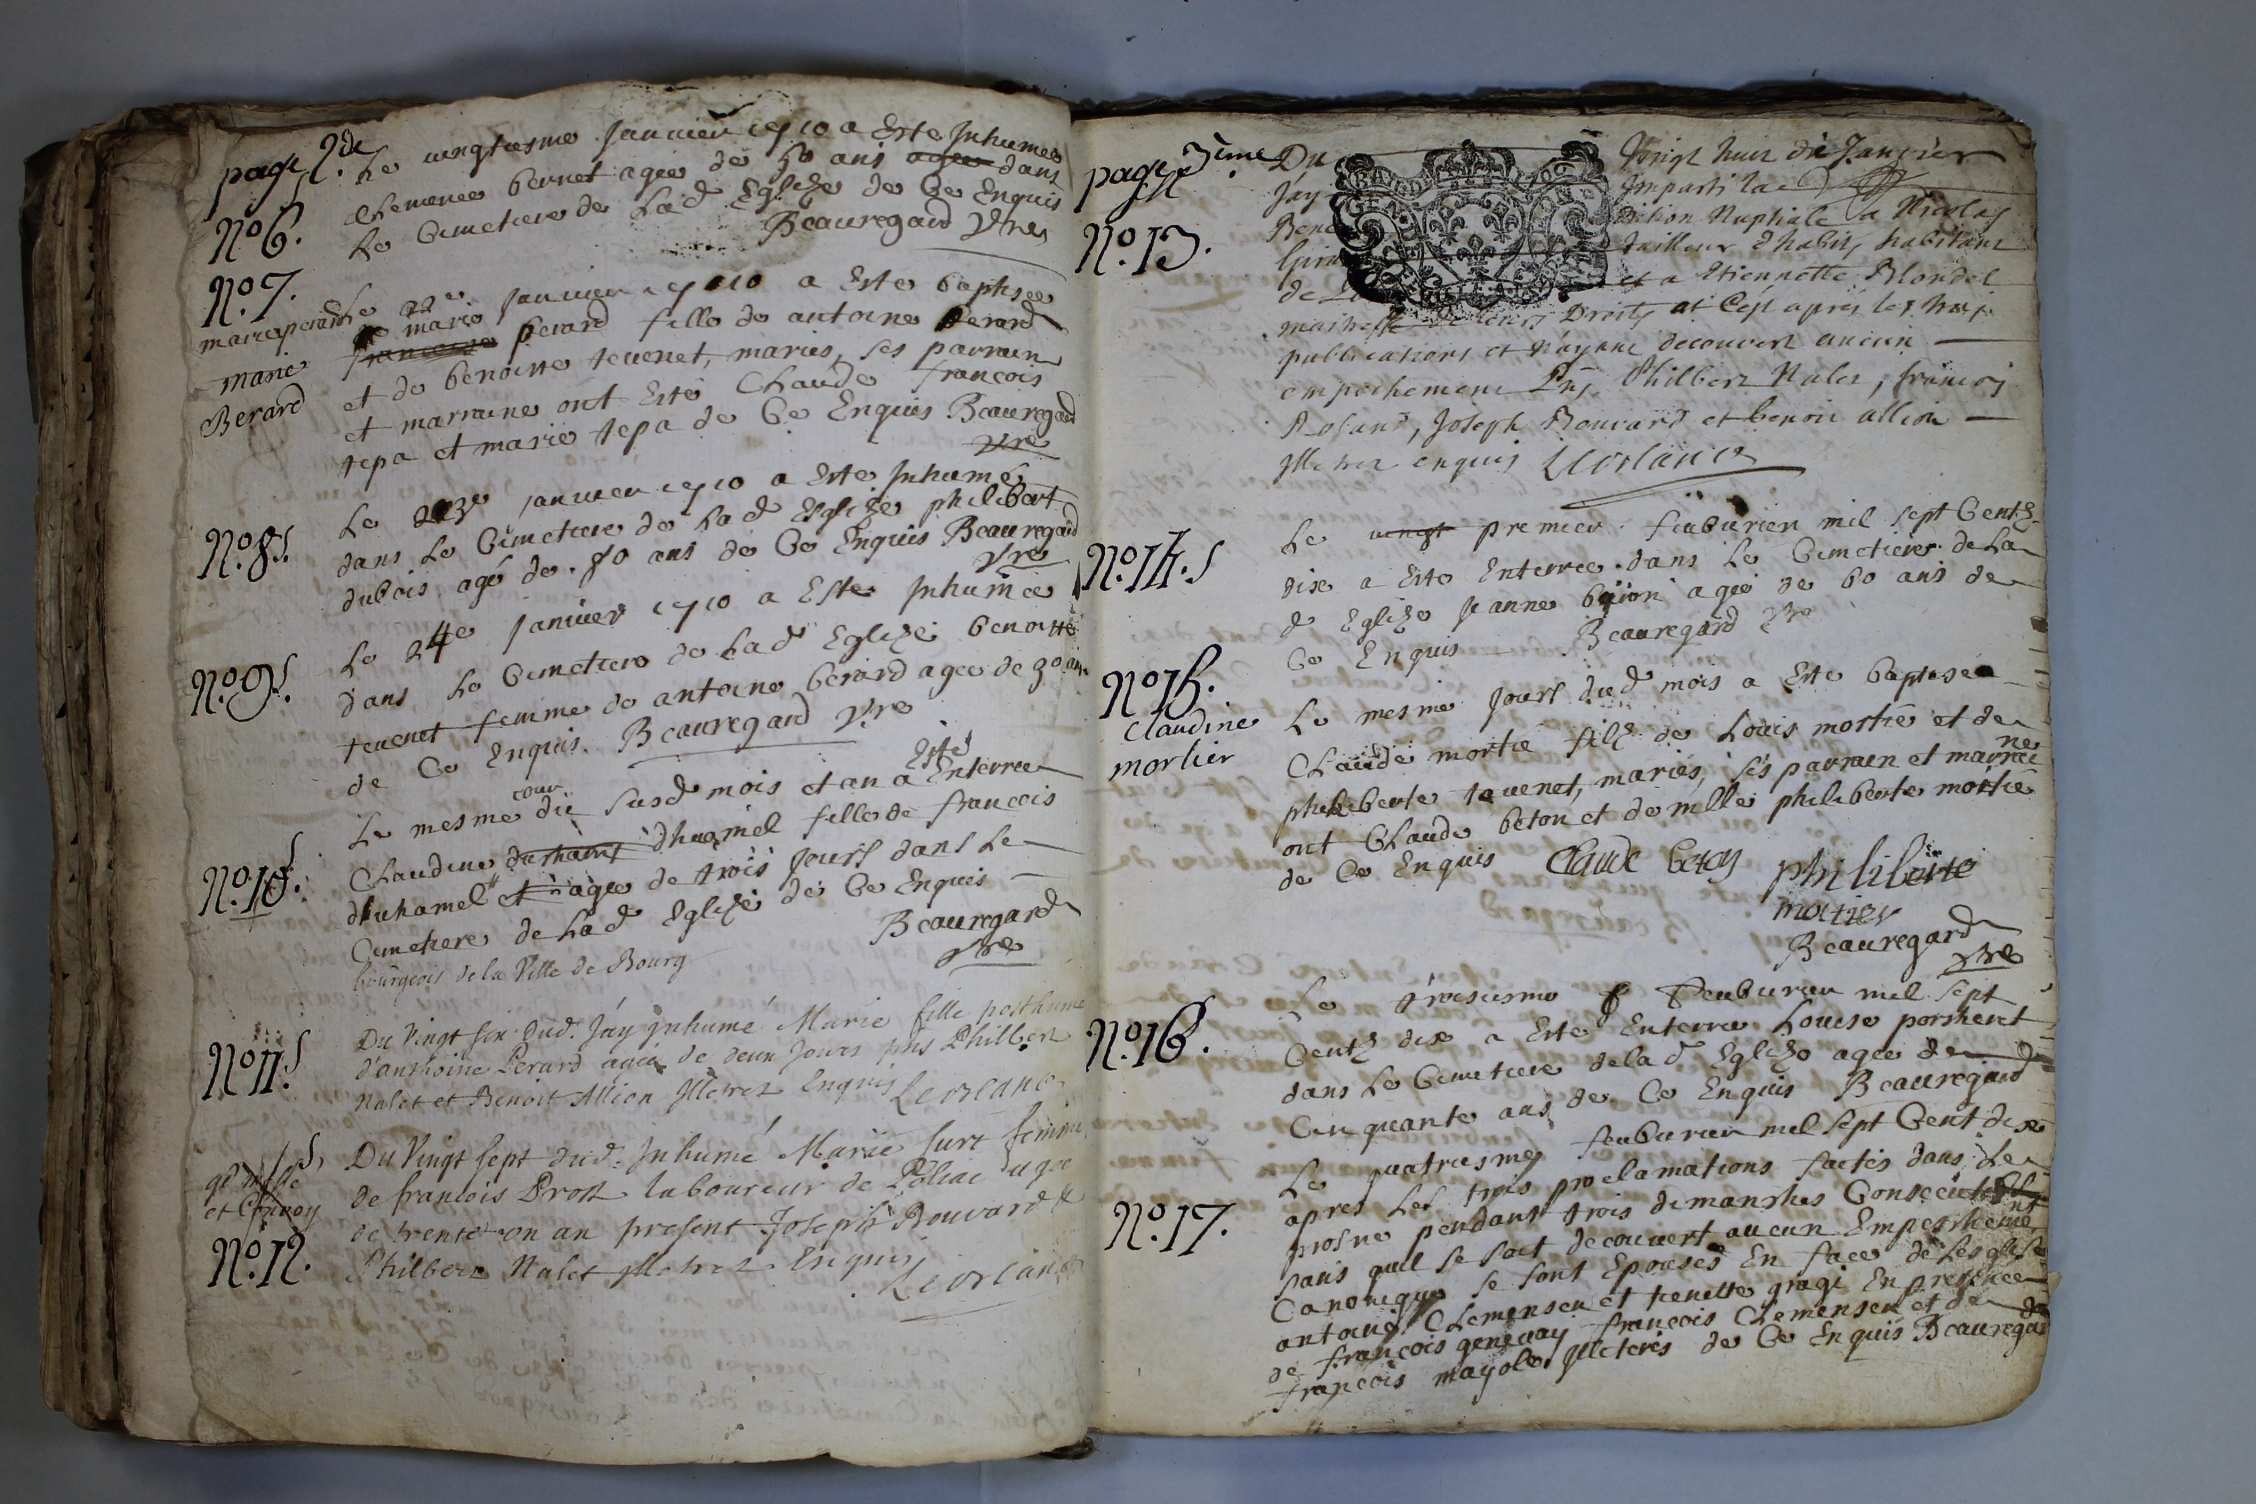 page 2de
No 6.
Le vingtiesme Janvier 1710 a Este Inhumee
Clemence bernet agee de 50 ans agee dans
Le Cimetiere de Lad Eglize de Ce Enquis
Beauregard Vre
No 7.
marie perard
marie
Berard
Le 22e Janvier 1710 a Este baptisee
marie
francoise berard fille de antoine berard
et de benoitte tevenet, maries, ses parrain
et marraine ont Esté Claude francois
tepa et marie tepa de Ce Enquis Beauregard
Vre
No. 8.
Le 23e Janvier 1710 a Este Inhumé
dans Le Cimetiere de Lad Eglize philibert
dubois agé de 80 ans de Ce Enquis Beauregard
Vre
No. 9.
Le 24e Janvier 1710 a Este Inhumée
dans Le Cimetiere de Lad Eglize benoitte
tevenet femme de antoine berard agee de 30 ans
de Ce Enquis. Beauregard Vre
No. 10.
Le mesme jour du susd mois et an a Esté Enterree
Claudine duhamel fille de francois
duhamel et agee de trois Jours dans Le
Cimetiere de Lad Eglize de Ce Enquis
Beauregard
Vre
bourgeois de la Ville de Bourg
No 11.
Du Vingt six Dud. J'ay inhumé Marie fille posthume
d'anthoine Perard agée de deux Jours pnts Philbert
Nalet et Benoit Allion Illetrez Enquis Leorlanc
et Convoy
No. 12.
Du Vingt sept dud. Inhumé Marie furt femme
de francois Prost laboureur de Poliac agée
de trente-on an present Joseph Bouvard et
Philbert Nalet Illetrez Enquis
Leorlanc
page 3eme
No. 13.
Du Vingt huit de Janvier
J'ay Imparti la
Bene diction Nuptiale a Nicolas
Tailleur d'habits habitant
et a Etiennette Blondel
maitresse de leurs Droits et C'est apres les trois
publications et n'ayant decouvert aucun
empechement Pnts Philbert Nalet, francois
Rosand, Joseph Bouvard et benoit allion
Illetrez enquis Leorlanc
No. 14.
Le vingt premier feuburier mil sept Centz
dix a Este Enterree dans Le Cimetiere de La
d Eglize Jeanne agee de 60 ans de
Ce Enquis Beauregard Vre
No 15.
Claudine
mortier
Le mesme Jours dud mois a Este baptisea
Claude mortie filz de Louis mortie et de
philiberte tevenet, maries, ses parrain et marraine
ont Claude beton et demelle philiberte mortie
de Ce Enquis Claude beton philiberte
mortier
Beauregard
Vre
No. 16.
Le troisiesme feuburier mil sept
Centz dix a Este Enterree Louise porcheret
dans Le Cimetiere de la d Eglize agee de
Cinquante ans de Ce Enquis Beauregard
No. 17.
Le quatriesme feuburier mil sept Cent dix
apres Les trois proclamations faites dans Le
prosne pendant trois dimanches Consecutifs
sans quil se soit decouvert aucun Empeschement
Canonique se sont Epousés En face de Leglise
antoine Clemenseu et tienette gragi En presence
de francois genevay francois Clemenseu et de
francois mayole Illeterés de Ce Enquis Beauregard